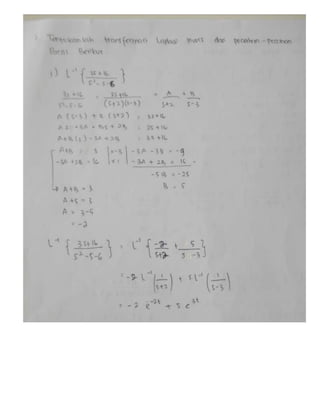 Tentukanlah transformasi Laplace invers dari pecahan-pecahan
Parsial Berikut
1) L⁻¹ { 3s+16 / s²-s-6 }
3s+16 / s²-s-6 = 3s+16 / (s+2)(s-3) = A / s+2 + B / s-3
A (s-3) + B (s+2) = 3s+16
As - 3A + Bs + 2B = 3s+16
A+B (s) - 3A + 2B = 3s+16
A+B = 3 |x-3| -3A - 3B = -9
-3A + 2B = 16 |x1| -3A + 2B = 16
-5B = -25
B = 5
→ A+B = 3
A+5 = 3
A = 3-5
= -2
L⁻¹ { 3s+16 / s²-s-6 } = L⁻¹ { -2 / s+2 + 5 / s-3 }
= -2 L⁻¹ ( 1 / s+2 ) + 5 L⁻¹ ( 1 / s-3 )
= -2 e⁻²ᵗ + 5 e³ᵗ